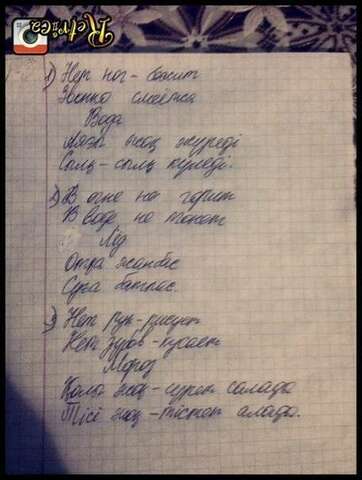 Retrica
1) Нет ног - бежит
Звонко смеётся
Вода
Аяғы жоқ жүреді
Сылқ-сылқ күледі.
2) В огне не горит
В воде не тонет
Лёд
Отқа жанбас
Суға батпас.
3) Нет рук - рисует
Нет зубов - кусает
Мороз
Қолы жоқ - сурет салады
Тісі жоқ - тістеп алады.